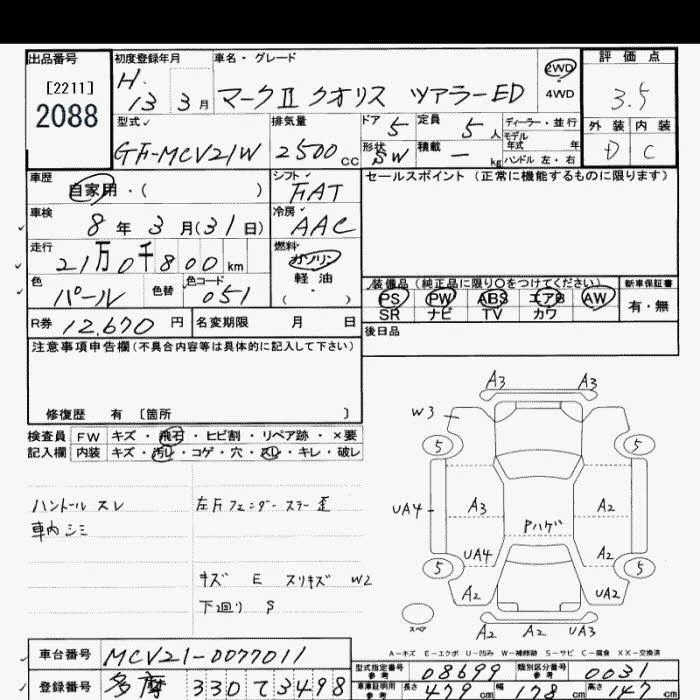 出品番号
[2211]
2088
初度登録年月
H.
13 3月
車名・グレード
マークII クオリス ツアラーED
2WD
4WD
評価点
3.5
型式
GF-MCV21W
排気量
2500cc
ドア 5
形状 SW
定員 5人
積載 ー kg
ディーラー・並行
モデル年式 年
ハンドル 左・右
外装 内装
D C
車歴
自家用・( )
シフト
FAT
セールスポイント(正常に機能するものに限ります)
車検
8年3月(31日)
冷房
AAC
走行
21万0千800km
燃料
ガソリン
軽油
( ・ )
色
パール
色替
色コード
051
装備品(純正品に限り○をつけてください)
PS PW ABS エアB AW
SR ナビ TV カワ
新車保証書
有・無
R券 12,670円
名変期限 月 日
後日品
注意事項申告欄(不具合内容等は具体的に記入して下さい)
修復歴 有 [箇所 ]
検査員記入欄
FW キズ・飛石・ヒビ割・リペア跡・×要
内装 キズ・汚レ・コゲ・穴・スレ・キレ・破レ
ハンドル スレ
車内 シミ
左Fフェンダー ステー 歪
キズ E スリキズ W2
下廻り S
A3 A3
W3
5 5
UA4 A3 A2
Pハゲ
UA4 A2
5 5
A2 UA2
スペア
A2 A2 UA3
A−キズ E−エクボ U−凹み W−補修跡 S−サビ C−腐食 XX−交換済
車台番号 MCV21-0077011
登録番号 多摩 330 て 3498
型式指定番号 参考 08699
類別区分番号 参考 0031
車庫証明用 参考 長さ 479cm 幅 178cm 高さ 167cm